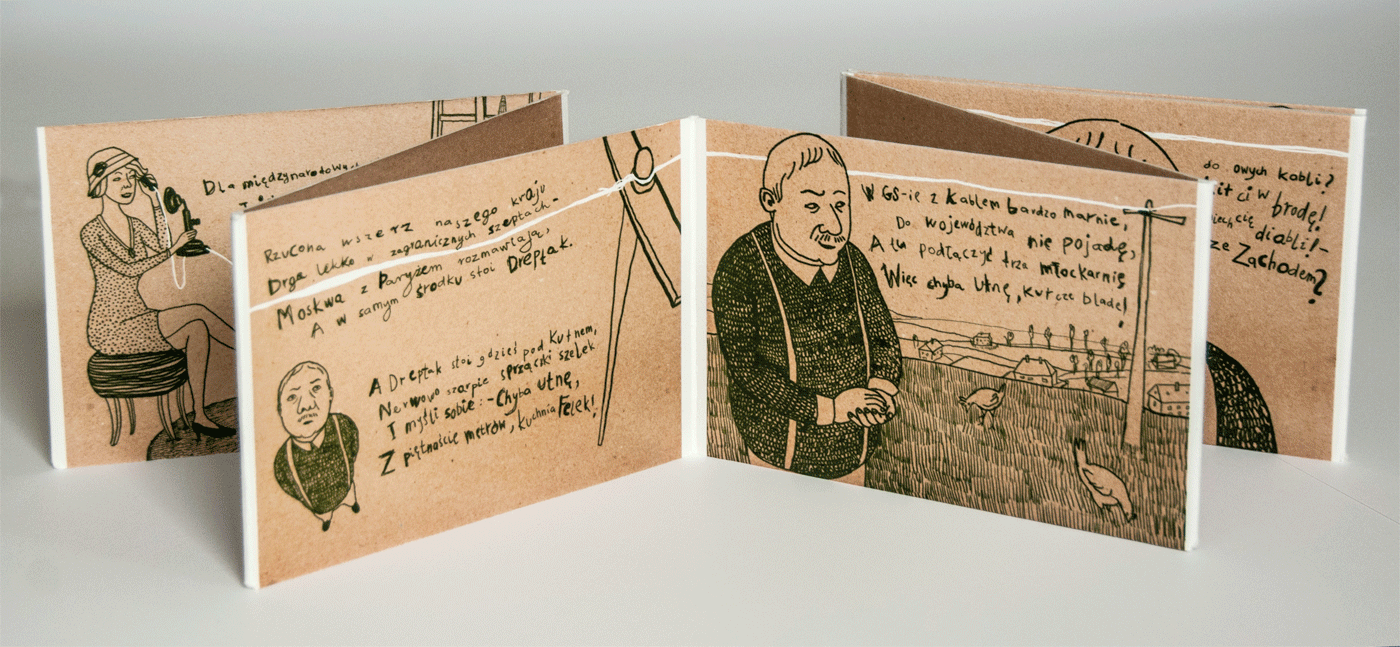 Dla międzynarodowych
Rzucona wszerz naszego kraju
Drga lekko w zagranicznych szeptach-
Moskwa z Paryżem rozmawiają,
A w samym środku stoi Dreptak.
A Dreptak stoi gdzieś pod Kutnem,
Nerwowo szarpie sprzączki szelek
I myśli sobie:-Chyba utnę,
Z piętnaście metrów, kuchnia Felek!
W GS-ie z kablem bardzo marnie,
Do województwa nie pojadę,
A tu podłączyć trza młockarnię
Więc chyba utnę, kurcze blade!
do owych kabli?
ci w brodę!
cię diabli!-
ze Zachodem?